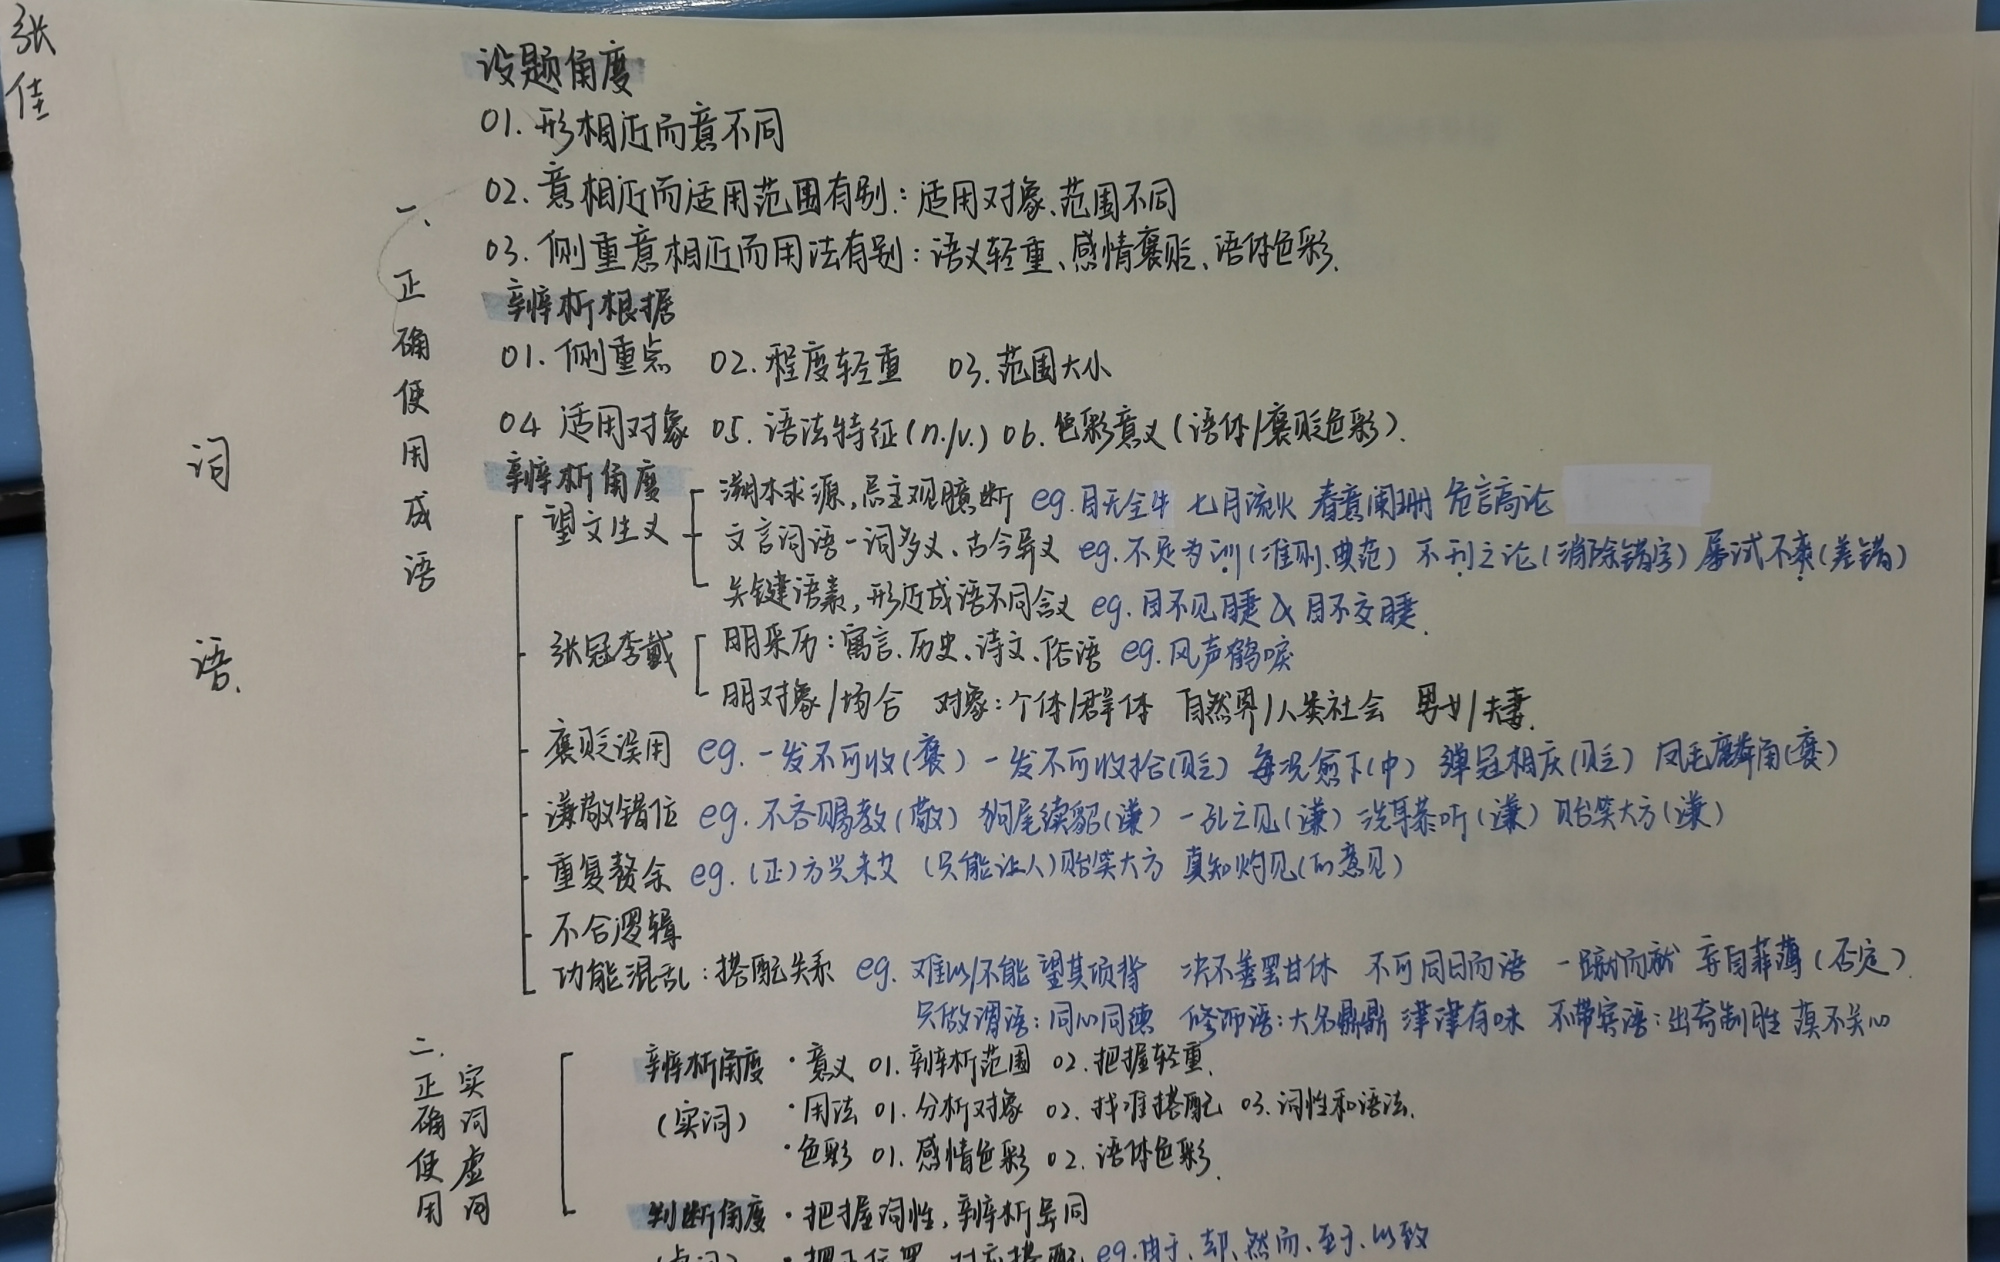 张佳
词语.
一、正确使用成语
设题角度
01. 形相近而意不同
02. 意相近而适用范围有别: 适用对象、范围不同
03. 侧重意相近而用法有别: 语义轻重、感情褒贬、语体色彩.
辨析根据
01. 侧重点 02. 程度轻重 03. 范围大小
04 适用对象 05. 语法特征(n./v.) 06. 色彩意义(语体/褒贬色彩).
辨析角度
望文生义
溯本求源, 忌主观臆断 eg. 目无全牛 七月流火 春意阑珊 危言高论
文言词语一词多义、古今异义 eg. 不足为训(准则、典范) 不刊之论(消除错字) 屡试不爽(差错)
关键语素, 形近成语不同含义 eg. 目不见睫 & 目不交睫.
张冠李戴
明来历: 寓言、历史、诗文、俗语 eg. 风声鹤唳
明对象/场合 对象: 个体/群体 自然界/人类社会 男女/夫妻.
褒贬误用 eg. 一发不可收(褒) 一发不可收拾(贬) 每况愈下(中) 弹冠相庆(贬) 凤毛麟角(褒)
谦敬错位 eg. 不吝赐教(敬) 狗尾续貂(谦) 一孔之见(谦) 洗耳恭听(谦) 贻笑大方(谦)
重复赘余 eg. (正)方兴未艾 (只能让人)贻笑大方 真知灼见(的意见)
不合逻辑
功能混乱: 搭配关系 eg. 难以/不能 望其项背 决不善罢甘休 不可同日而语 一蹴而就 妄自菲薄(否定)
只做谓语: 同心同德 修饰语: 大名鼎鼎 津津有味 不带宾语: 出奇制胜 漠不关心
二. 正确使用实词虚词
辨析角度 · 意义 01. 辨析范围 02. 把握轻重.
(实词) · 用法 01. 分析对象 02. 找准搭配 03. 词性和语法.
· 色彩 01. 感情色彩 02. 语体色彩.
判断角度 · 把握词性, 辨析异同
eg. 由于、却、然而、至于、以致